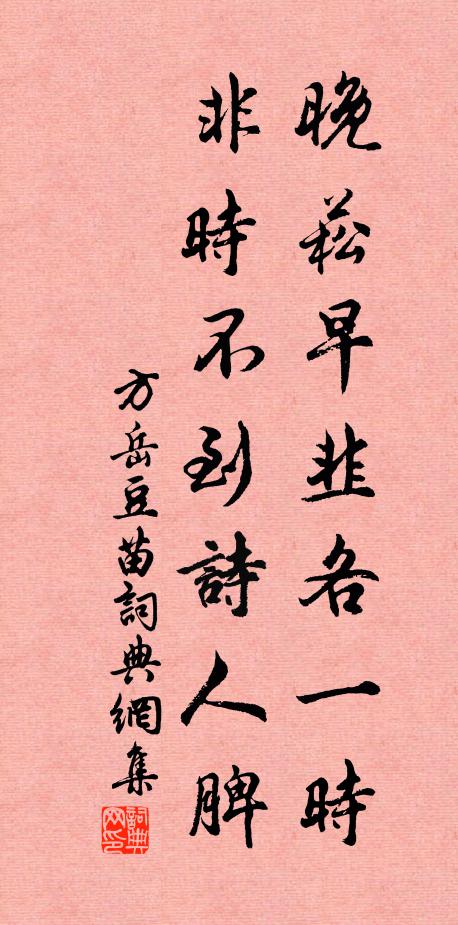 晚菘早韭各一時
非時不到詩人脾
方岳豆苗詞典網集
詞典
网印